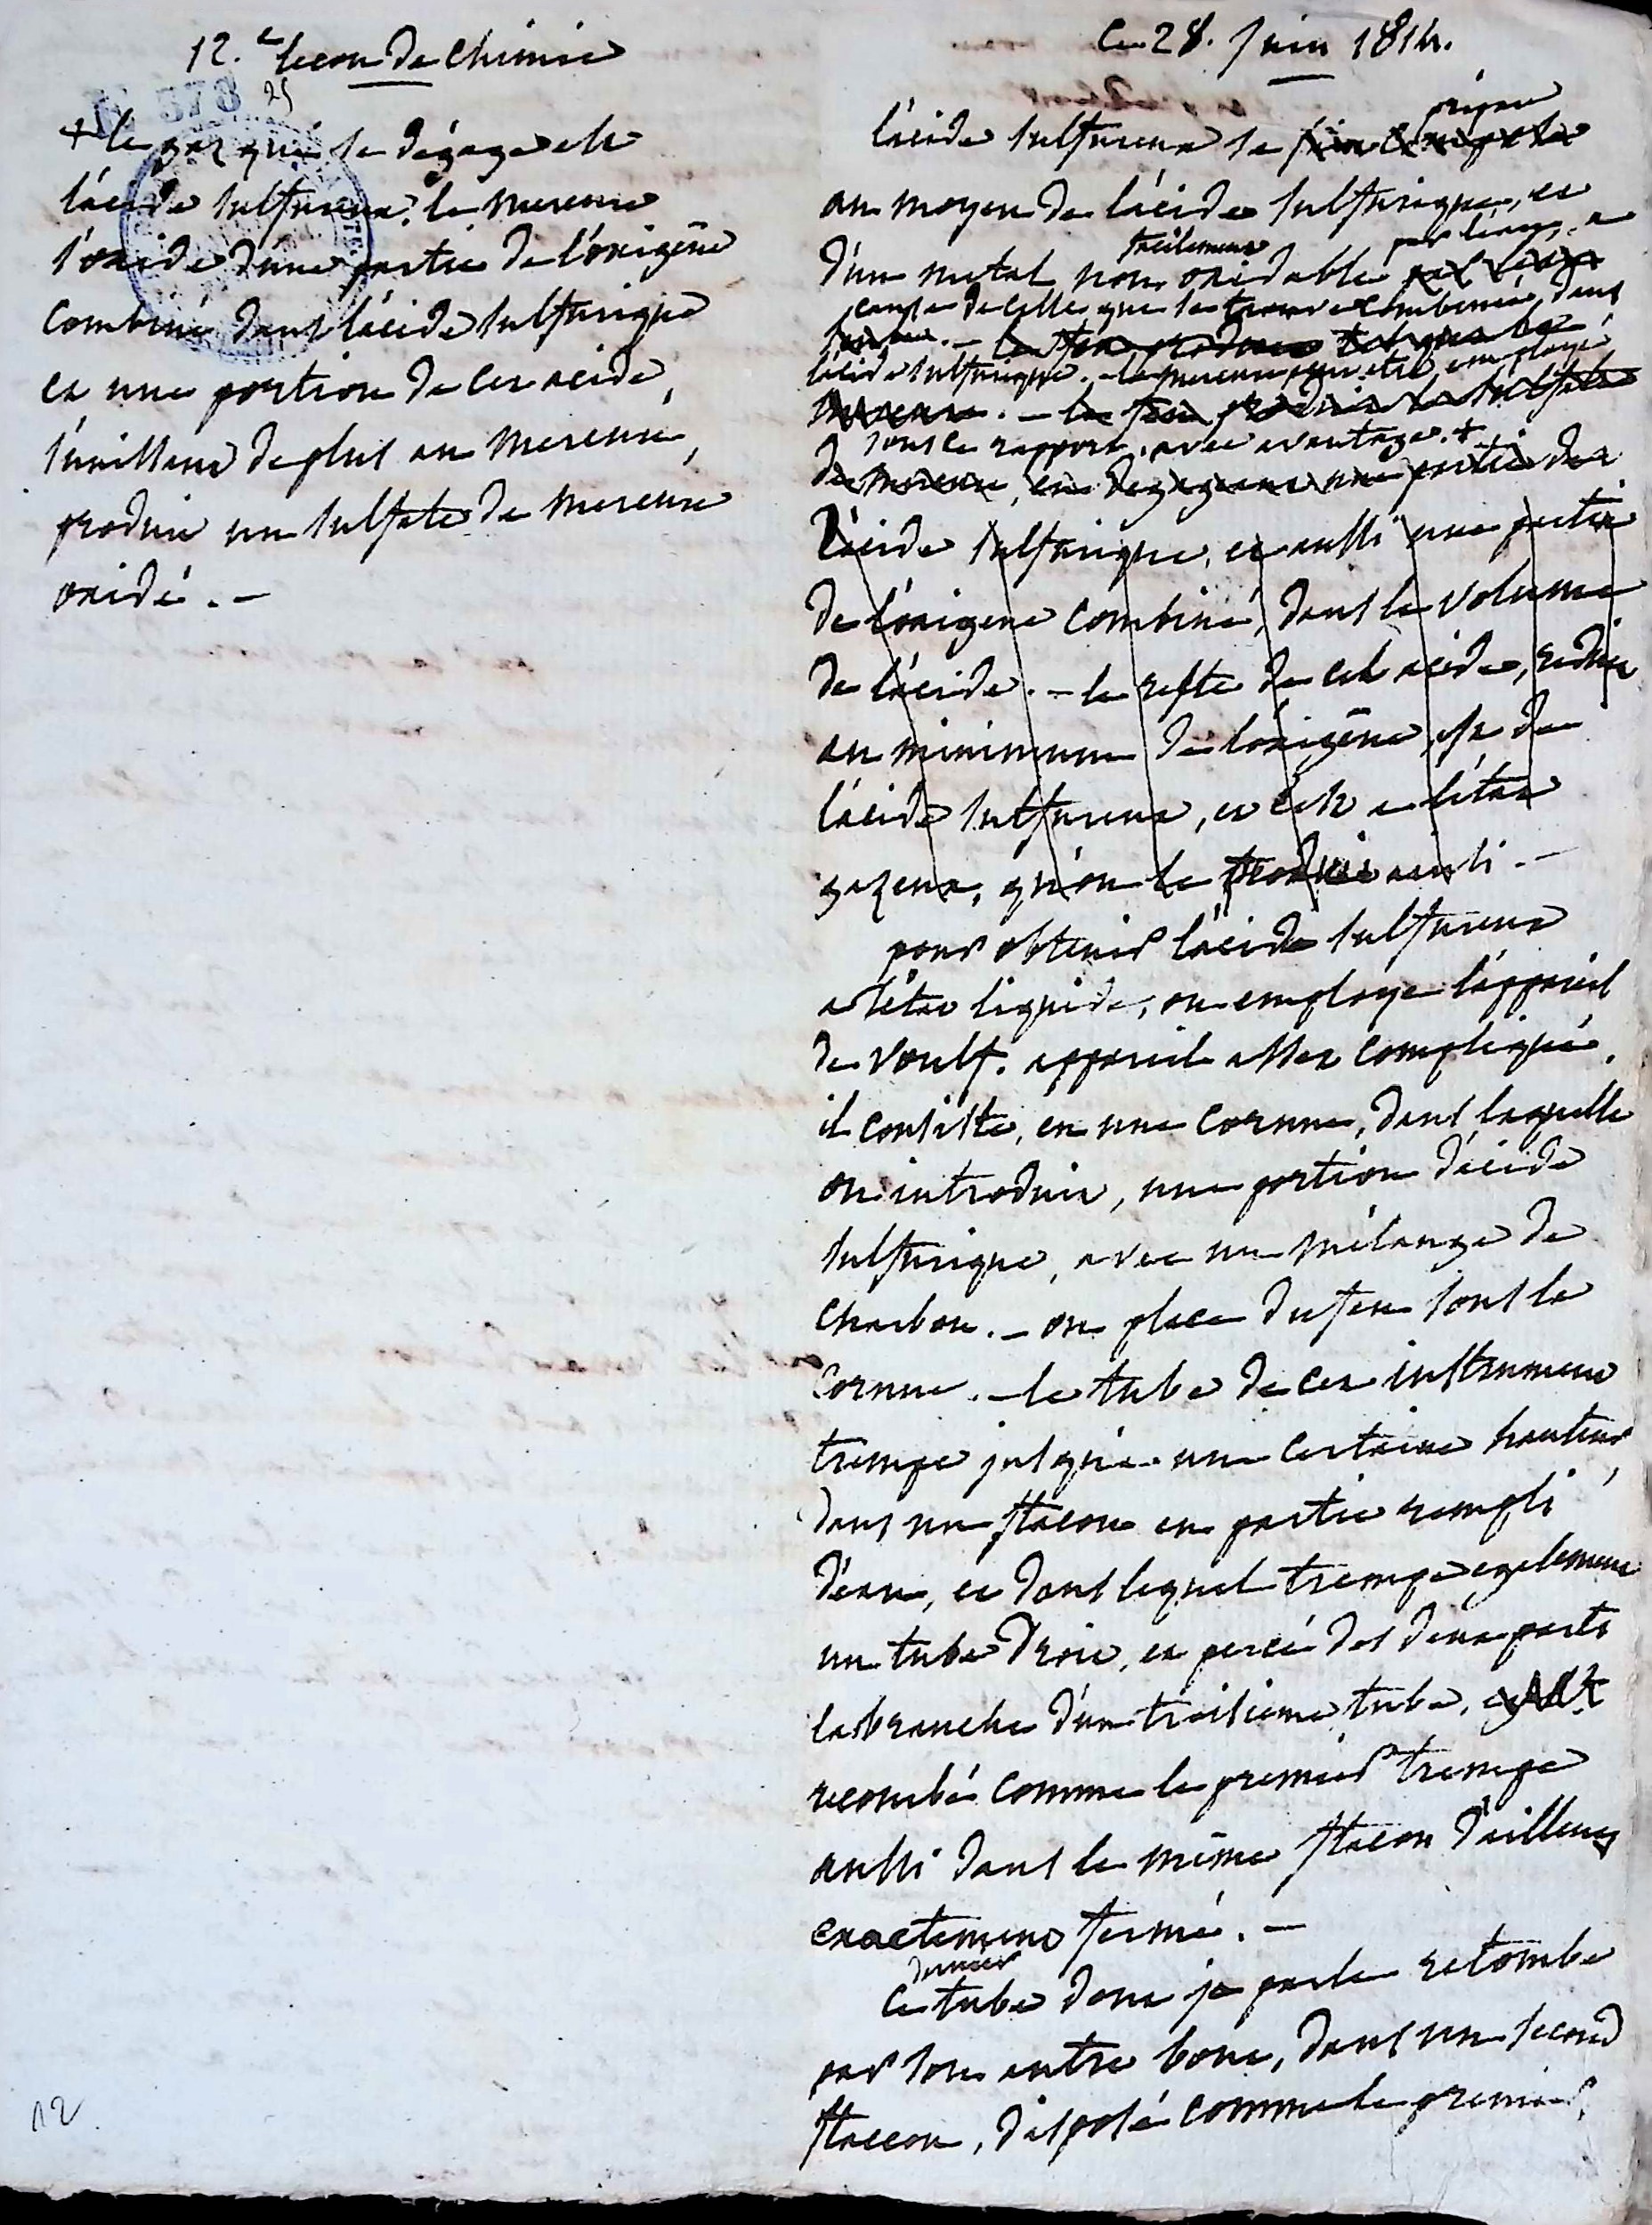 12.e lecon de chimie
25
+ le gaz qui se dégage est
l'acide sulfureux. le mercure
s'oxide d'une partie de l'oxigêne
combiné dans l'acide sulfurique
et une portion de cet acide,
s'unissant de plus au mercure,
produit un sulfate de mercure
oxidé. —
12
Ce 28. Juin 1814.
prépare
l'acide sulfureux se
au moyen de l'acide sulfurique, et
facilement par l'oxig. a
d'un metal non oxidable par l'oxig
cause de celle que se trouve combinée dans
l'acide sulfurique. - le mercure peut etre employé
mercure. - le feu produit le sulfate
sous ce rapport, avec avantage. +
de mercure, en degageant une partie de
l'acide sulfurique, et aussi une partie
de l'oxigene combiné, dans le volume
de l'acide. - le reste de cet acide, reduit
au minimum de l'oxigêne, est de
l'acide sulfureux, et c'est a l'état
gazeux, qu'on le produit ainsi. —
pour obtenir l'acide sulfureux
a l'état liquide, on employe l'appareil
de Voulf. appareil assez compliqué.
il consiste, en une cornue, dans laquelle
on introduit, une portion d'acide
sulfurique, avec un mélange de
charbon. - on place du feu sous la
cornue. - le tube de cet instrument
trempe jusqu'a une certaine hauteur,
dans un flacon en partie rempli
d'eau, et dans lequel trempe egalement
un tube droit, et percé des deux parts
la branche d'un troisieme tube,
recourbé comme le premier trempe
aussi dans le même flacon d'ailleurs
exactement fermé. —
dernier
Ce tube dont je parle retombe
par son autre bout, dans un second
flacon, disposé comme le premier.